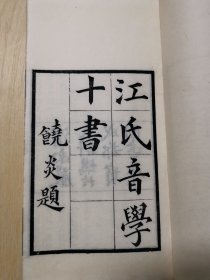 江氏音學
十書
饒炎題